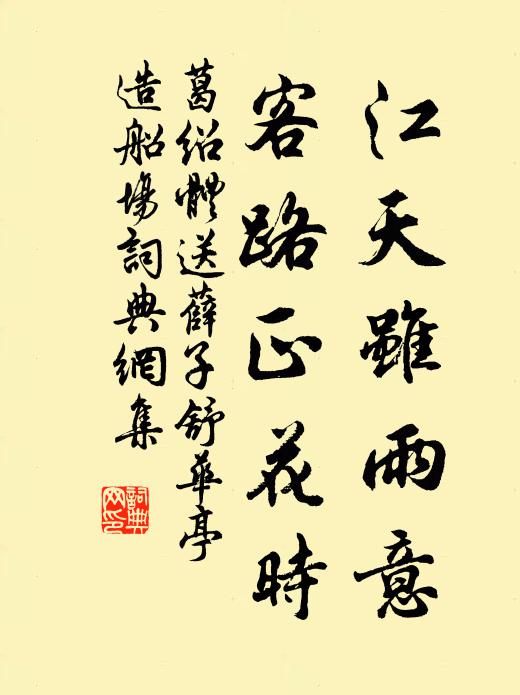 江天雖雨意
客路正花時
葛紹體送薛子舒華亭
造船場詞典網集
詞典
网印